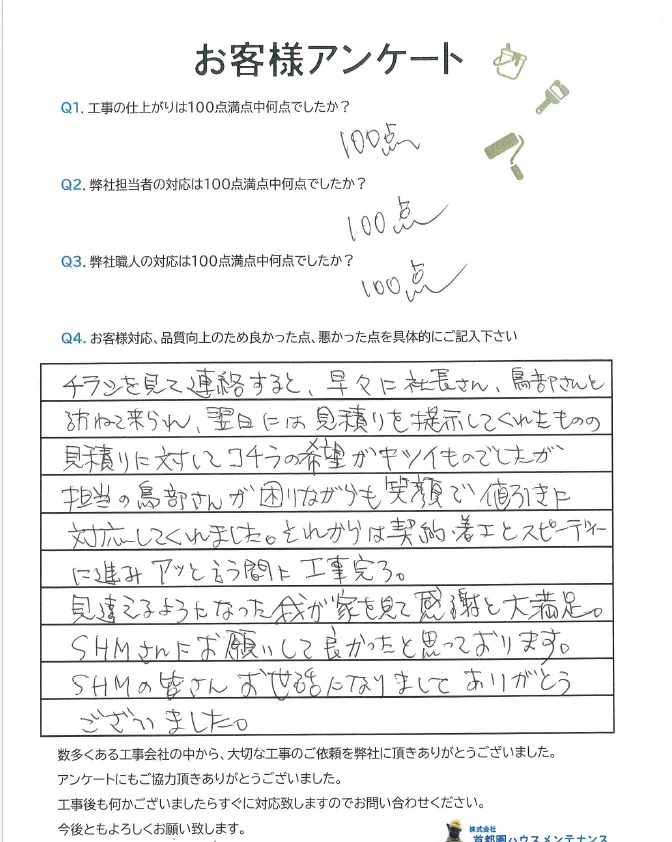 お客様アンケート
Q1. 工事の仕上がりは100点満点中何点でしたか？
100点
Q2. 弊社担当者の対応は100点満点中何点でしたか？
100点
Q3. 弊社職人の対応は100点満点中何点でしたか？
100点
Q4. お客様対応、品質向上のため良かった点、悪かった点を具体的にご記入下さい
チラシを見て連絡すると、早々に社長さん、鳥部さんと
訪ねて来られ、翌日には見積りを提示してくれたものの
見積りに対してコチラの希望がキツイものでしたが
担当の鳥部さんが困りながらも笑顔で値引きに
対応してくれました。それからは契約、着工とスピーディー
に進みアッと言う間に工事完了。
見違えるようになった我が家を見て感謝と大満足。
SHMさんにお願いして良かったと思っております。
SHMの皆さんお世話になりましてありがとう
ございました。
数多くある工事会社の中から、大切な工事のご依頼を弊社に頂きありがとうございました。
アンケートにもご協力頂きありがとうございました。
工事後も何かございましたらすぐに対応致しますのでお問い合わせください。
今後ともよろしくお願い致します。
株式会社
首都圏ハウスメンテナンス